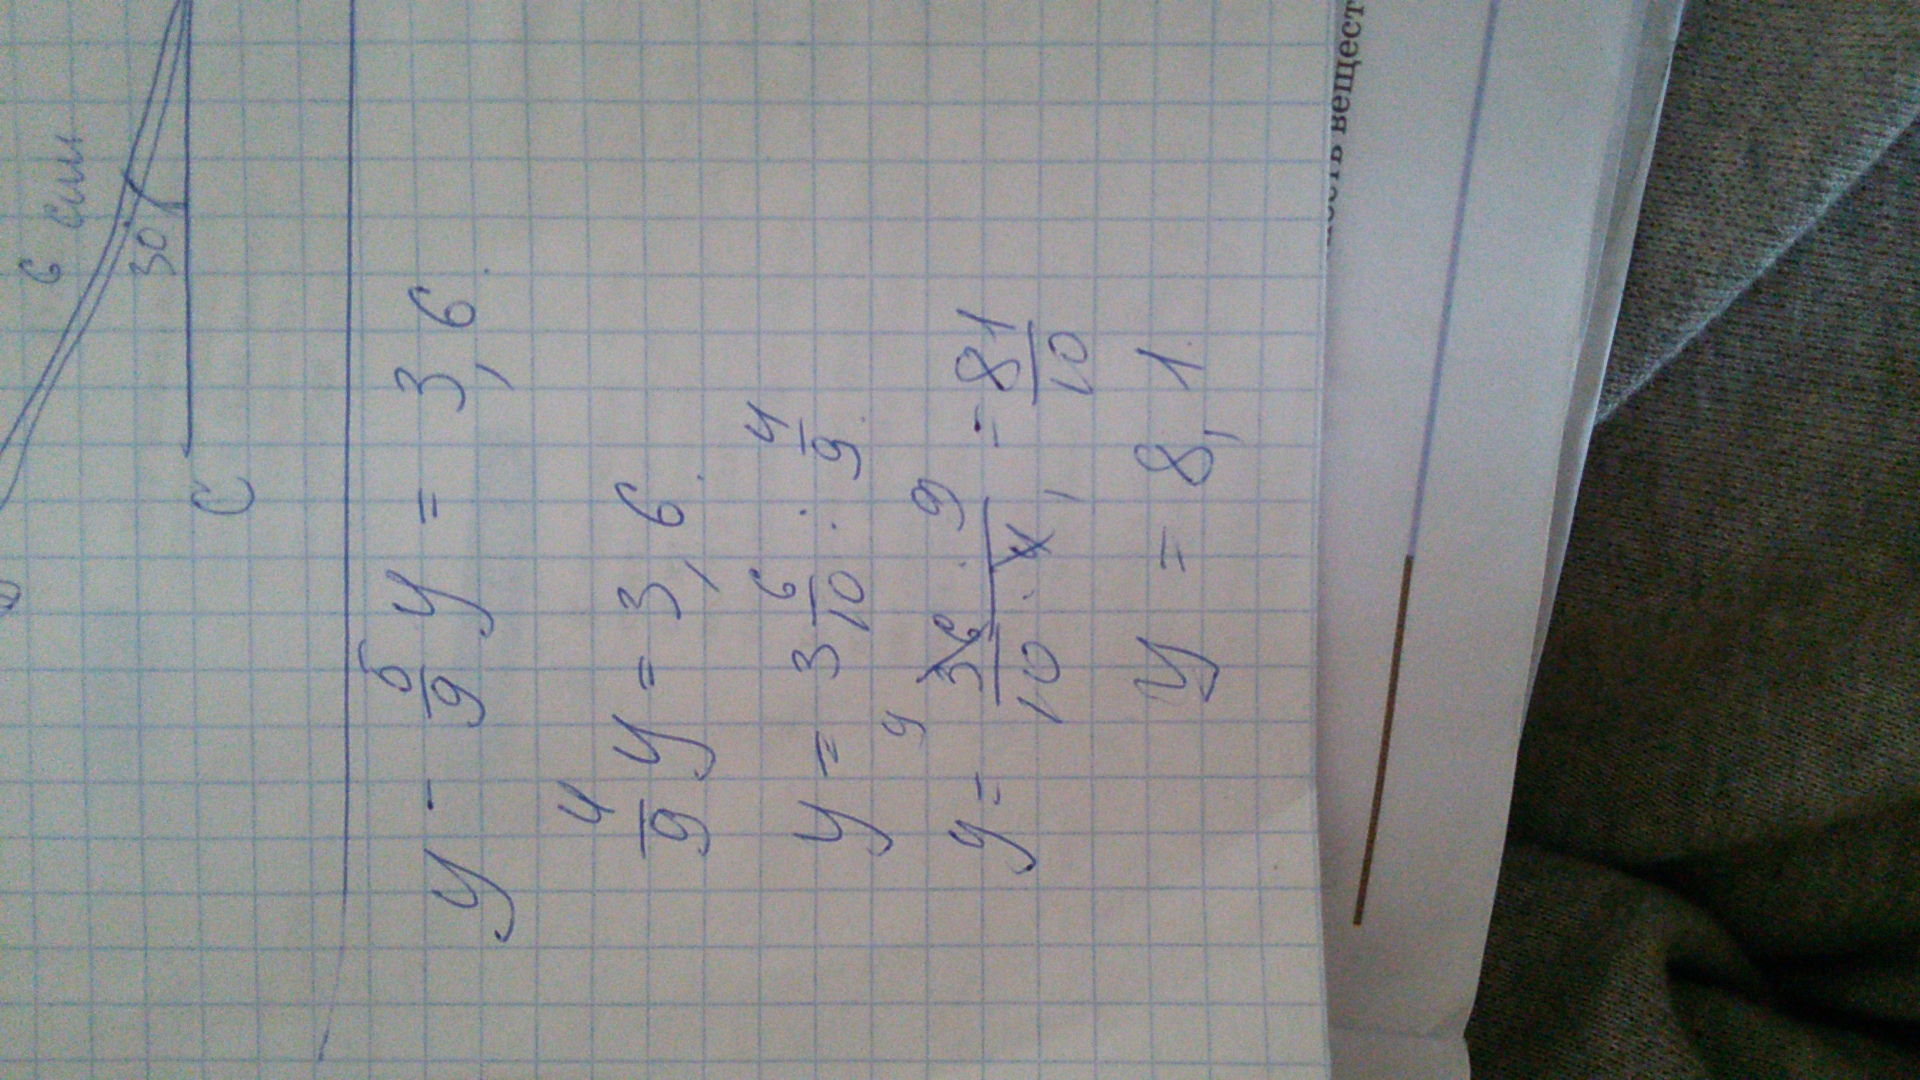 6 см
30
C
y - 5/9 y = 3,6
4/9 y = 3,6
y = 3 6/10 : 4/9
y = 36 · 9 / 10 · 4 = 81/10
9 1
y = 8,1